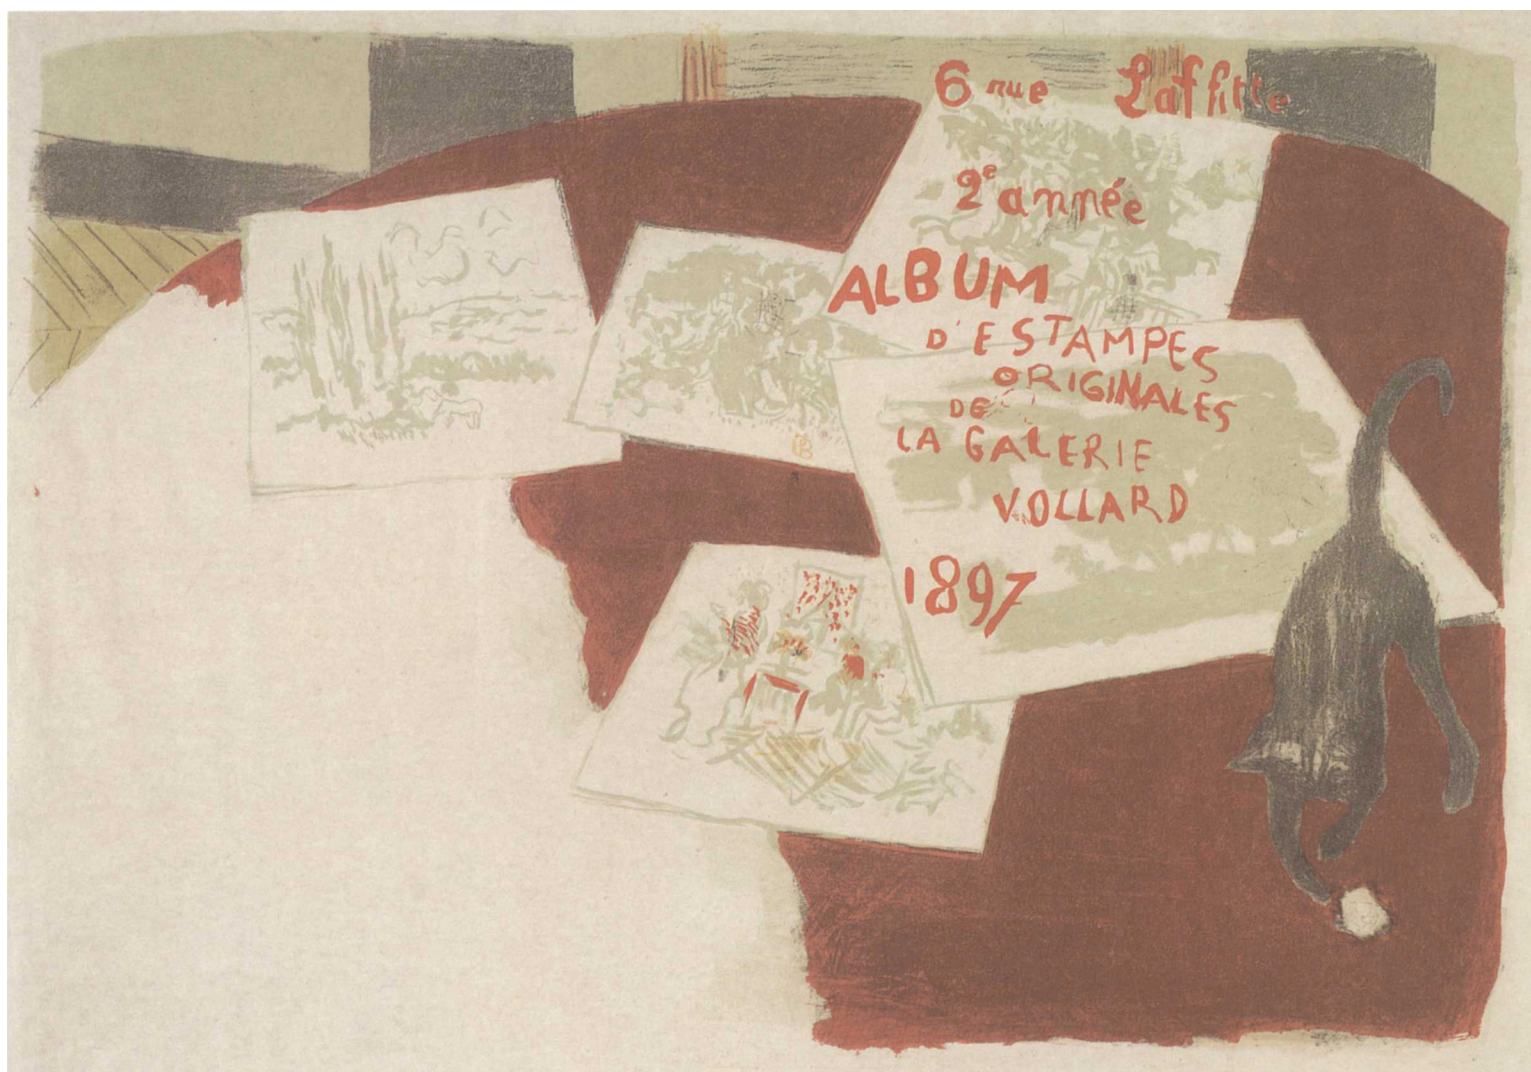 6 rue Laffitte
2e année
ALBUM
D'ESTAMPES
ORIGINALES
DE
LA GALERIE
VOLLARD
1897
PB